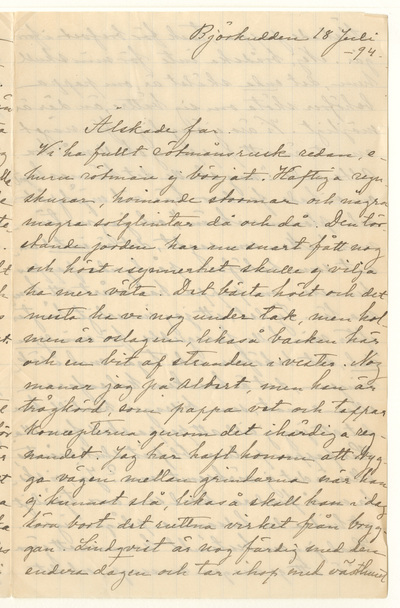 Björkudden 18 Juli
-94.
Älskade far.
Vi ha fullt rötmånsruck redan, e-
huru rötmån ej börjat. Häftiga regn
skurar, hvinande stormar och några
magra solglimtar då och då. Den tör-
stande jorden har nu snart fått nog
och höst i synnerhet skulle ej vilja
ha mer väta. Det bästa höet och det
mesta ha vi nog under tak, men hol-
men är oslagen, likaså backen här
och en bit af stranden i vester. Nog
manar jag på Albert, men han är
trögkörd, som pappa vet och tappar
koncepterna genom det ihärdiga reg-
nandet. Jag har haft honom att byg-
ga vägen mellan grindarna när han
ej kunnat slå, likaså skall han i dag
köra bort det ruttna virket från bryg-
gan. Lindqvist är nog färdig med den
endera dagen och tar ihop med växthuset